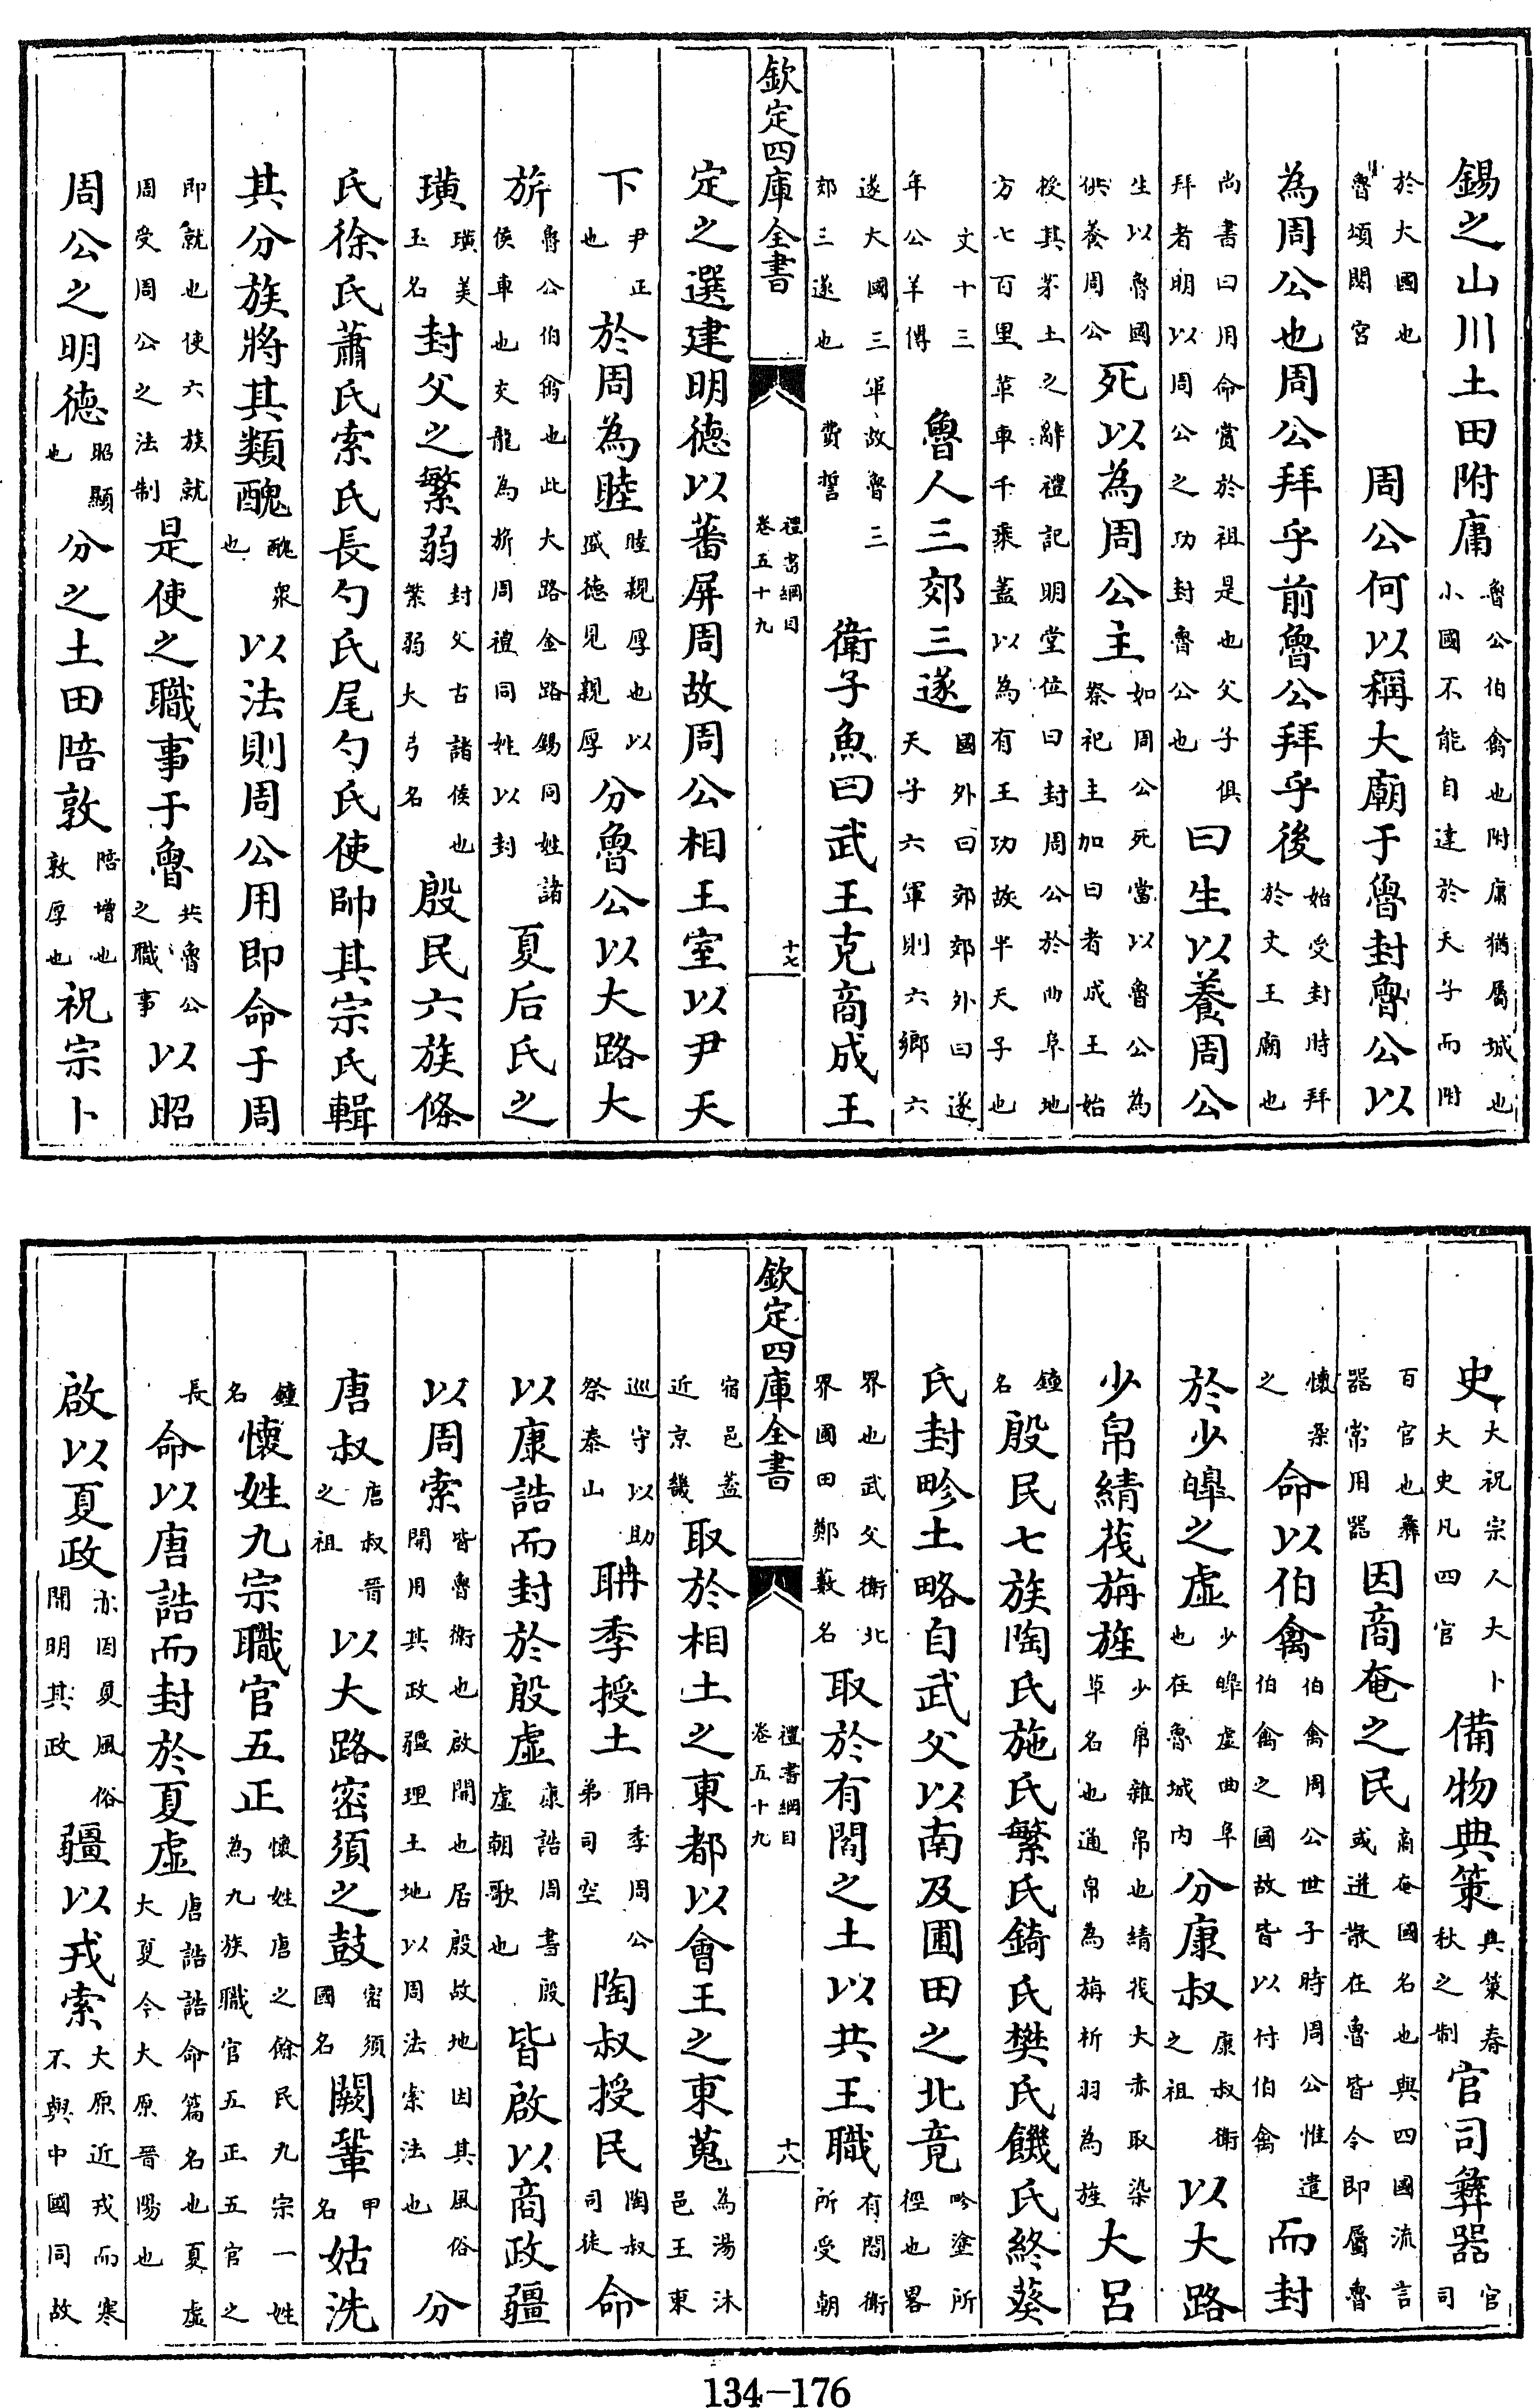 錫之山川土田附庸魯公伯禽也附庸猶屬城也小國不能自達於天子而附
於大國也魯頌閟宮周公何以稱大廟于魯封魯公以
為周公也周公拜乎前魯公拜乎後始受封時拜於文王廟也
尚書曰用命賞於祖是也父子俱拜者明以周公之功封魯公也曰生以養周公
生以魯國供養周公死以為周公主如周公死當以魯公為祭祀主加曰者成王始
授其茅土之辭禮記明堂位曰封周公於曲阜地方七百里革車千乘蓋以為有王功故半天子也
文十三年公羊傳魯人三郊三遂國外曰郊郊外曰遂天子六軍則六鄉六
遂大國三軍故魯三郊三遂也費誓衛子魚曰武王克商成王
欽定四庫全書 禮書綱目卷五十九 十七
定之選建明德以蕃屏周故周公相王室以尹天
下尹正也於周為睦睦親厚也以盛德見親厚分魯公以大路大
旂魯公伯禽也此大路金路錫同姓諸侯車也交龍為旂周禮同姓以封夏后氏之
璜璜美玉名封父之繁弱封父古諸侯也繁弱大弓名殷民六族條
氏徐氏蕭氏索氏長勺氏尾勺氏使帥其宗氏輯
其分族將其類醜醜衆也以法則周公用即命于周
即就也使六族就周受周公之法制是使之職事于魯共魯公之職事以昭
周公之明德昭顯也分之土田陪敦陪增也敦厚也祝宗卜
史大祝宗人大卜大史凡四官備物典策典策春秋之制官司彝器官司
百官也彝器常用器因商奄之民商奄國名也與四國流言或迸散在魯皆令即屬魯
懷柔之命以伯禽伯禽周公世子時周公惟遣伯禽之國故皆以付伯禽而封
於少皥之虛少皥虛曲阜也在魯城內分康叔康叔衛之祖以大路
少帛綪茷旃旌少帛雜帛也綪茷大赤取染草名也通帛為旃析羽為旌大呂
鐘名殷民七族陶氏施氏繁氏錡氏樊氏饑氏終葵
氏封畛土略自武父以南及圃田之北竟畛塗所徑也畧
界也武父衛北界圃田鄭藪名取於有閻之土以共王職有閻衛所受朝
欽定四庫全書 禮書綱目卷五十九 十八
宿邑蓋近京畿取於相土之東都以會王之東蒐為湯沐邑王東
巡守以助祭泰山聃季授土聃季周公弟司空陶叔授民陶叔司徒命
以康誥而封於殷虛康誥周書殷虛朝歌也皆啟以商政疆
以周索皆魯衛也啟開也居殷故地因其風俗開用其政疆理土地以周法索法也分
唐叔唐叔晉之祖以大路密須之鼓密須國名闕鞏甲名姑洗
鐘名懷姓九宗職官五正懷姓唐之餘民九宗一姓為九族職官五正五官之
長命以唐誥而封於夏虛唐誥誥命篇名也夏虛大夏今大原晉陽也
啟以夏政亦因夏風俗開明其政疆以戎索大原近戎而寒不與中國同故
134–176